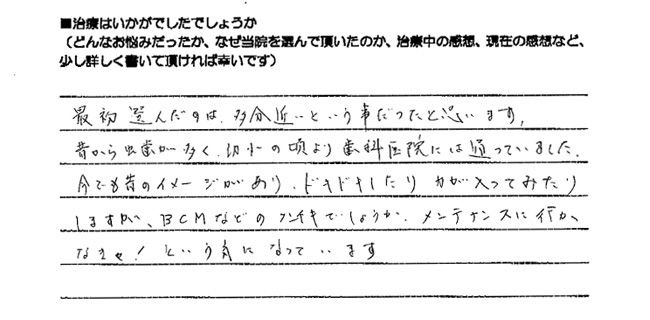 ■治療はいかがでしたでしょうか
(どんなお悩みだったか、なぜ当院を選んで頂いたのか、治療中の感想、現在の感想など、
少し詳しく書いて頂ければ幸いです)
最初選んだのは、多分近いという事だったと思います。
昔から虫歯が多く、幼少の頃より歯科医院には通っていました。
今でも昔のイメージがあり、ドキドキしたり力が入ってみたり
しますが、BCMなどのフンイキでしょうか、メンテナンスに行か
なきゃ!という気になっています